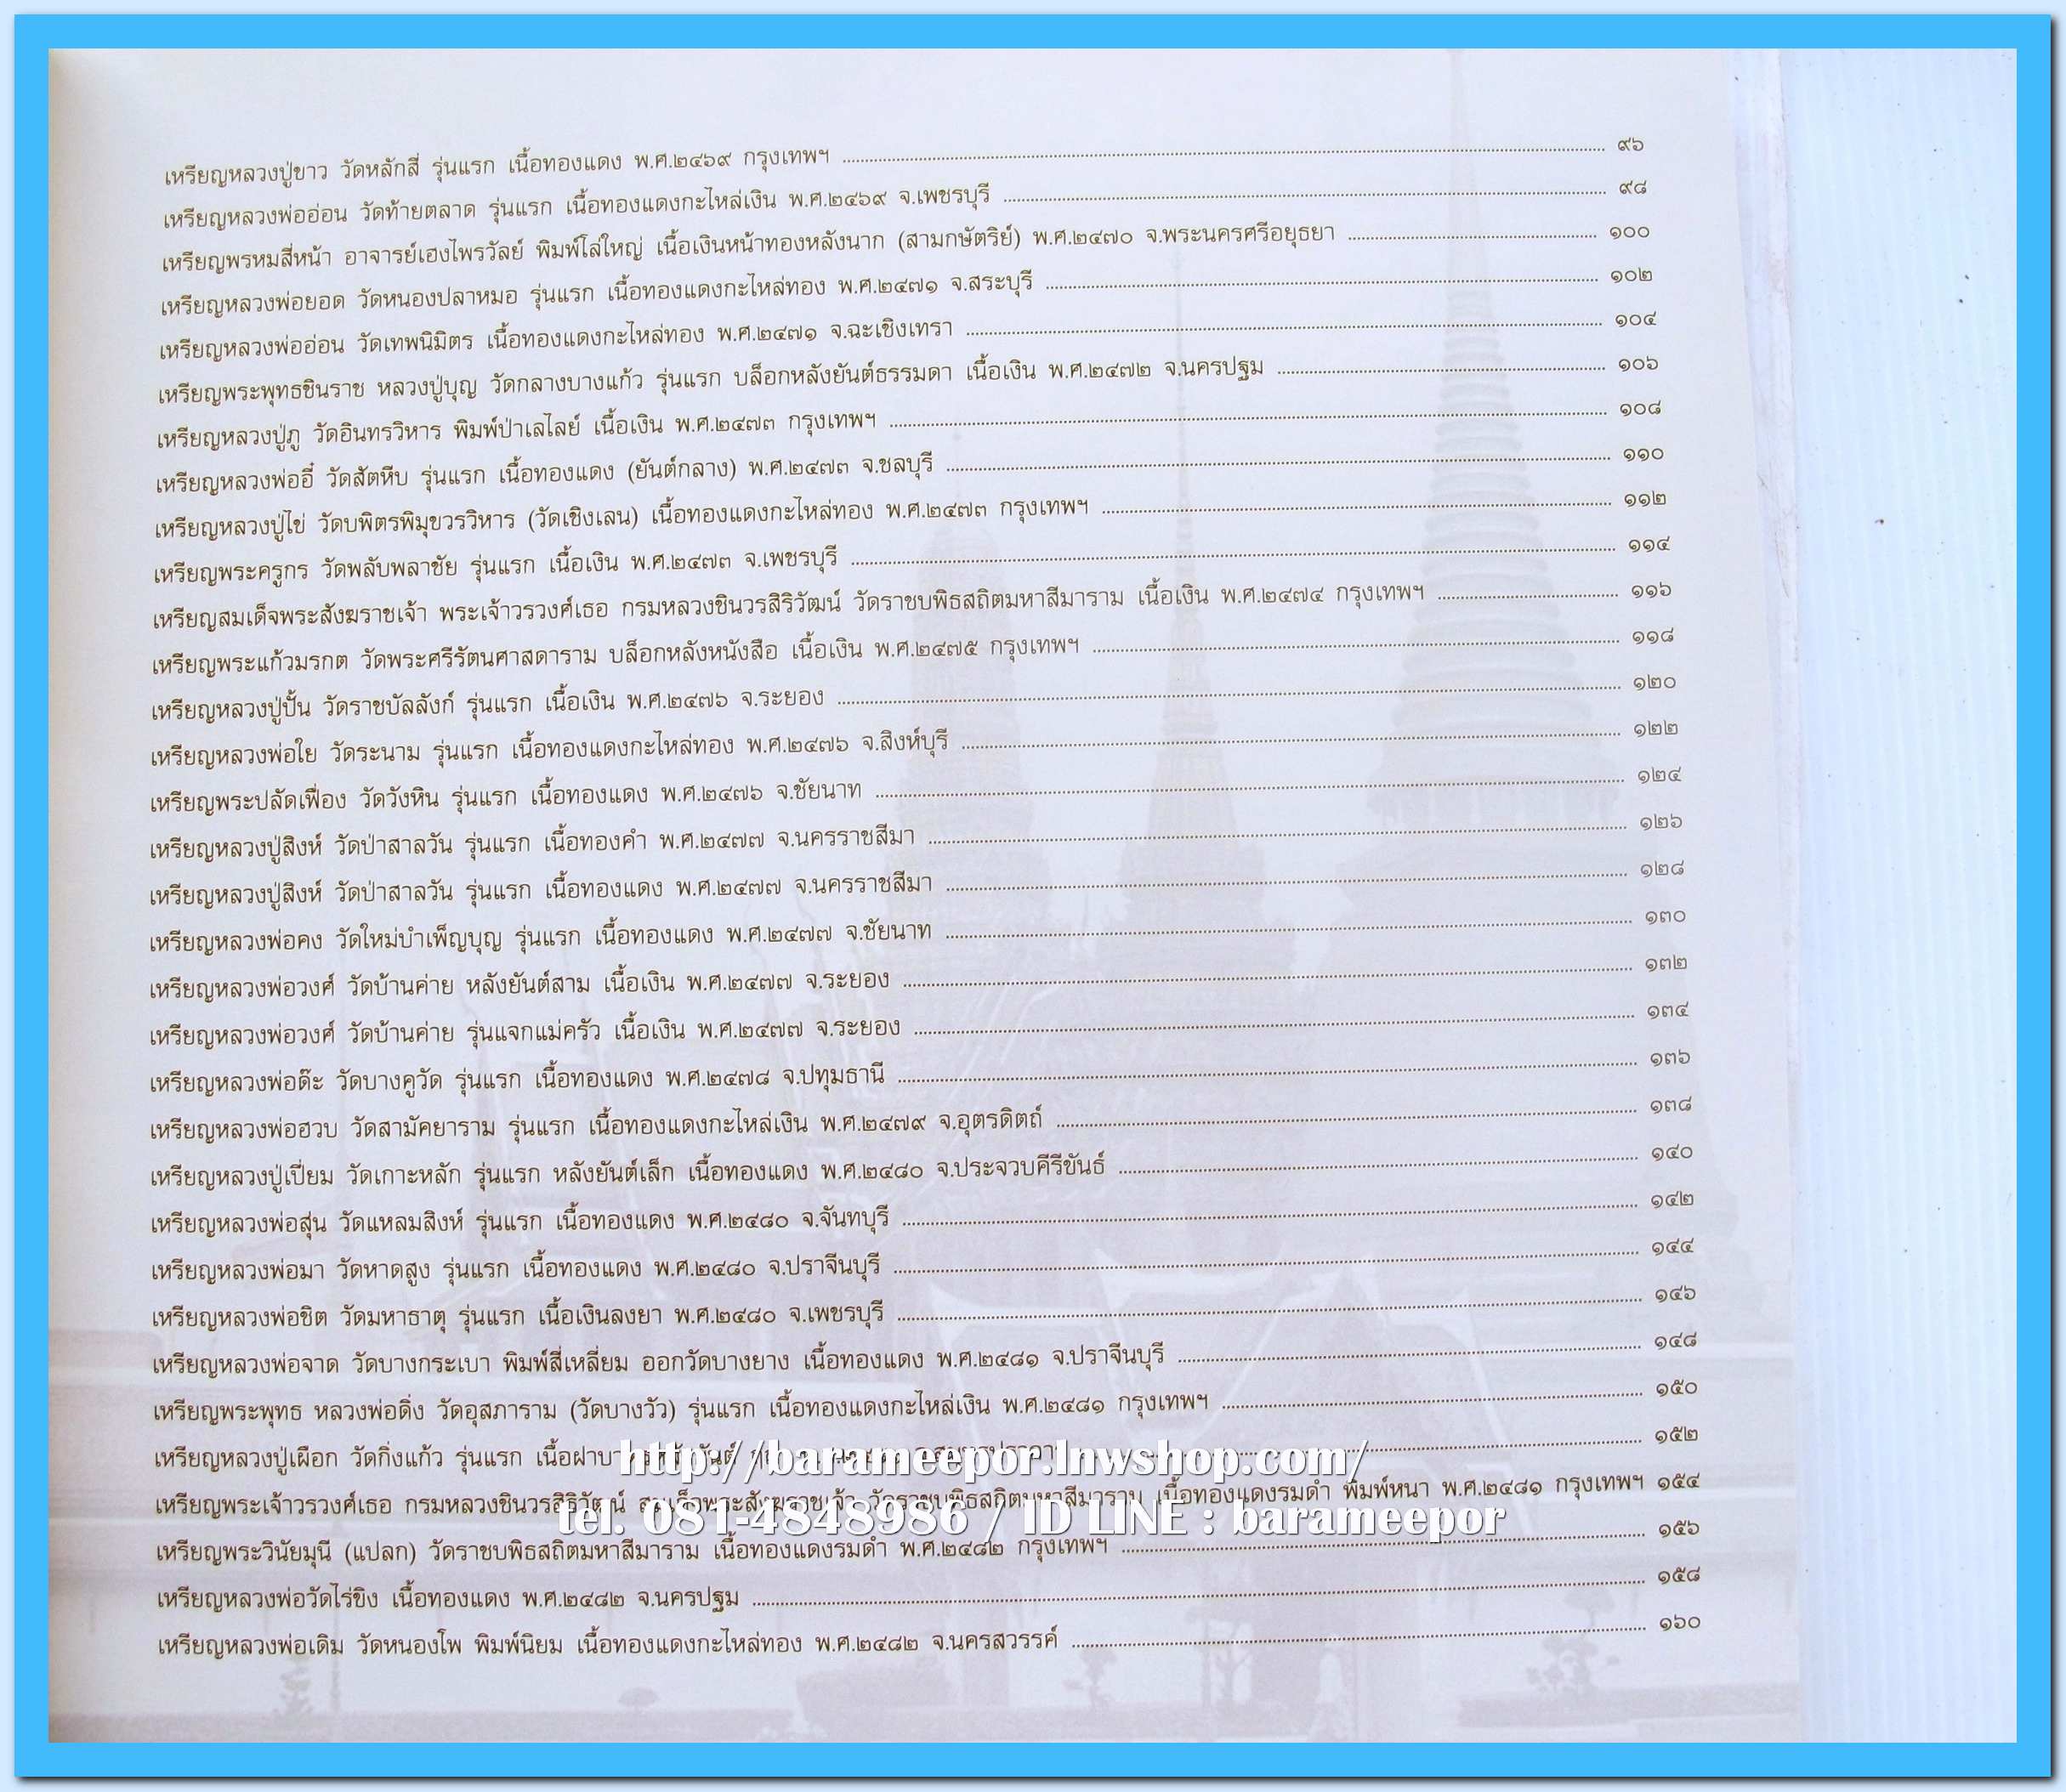 เหรียญหลวงปู่ขาว วัดหลักสี่ รุ่นแรก เนื้อทองแดง พ.ศ.๒๔๖๙ กรุงเทพฯ ๙๖
เหรียญหลวงพ่ออ่อน วัดท้ายตลาด รุ่นแรก เนื้อทองแดงกะไหล่เงิน พ.ศ.๒๔๖๙ จ.เพชรบุรี ๙๘
เหรียญพรหมสี่หน้า อาจารย์เฮงไพรวัลย์ พิมพ์โล่ใหญ่ เนื้อเงินหน้าทองหลังนาก (สามกษัตริย์) พ.ศ.๒๔๗๐ จ.พระนครศรีอยุธยา ๑๐๐
เหรียญหลวงพ่อยอด วัดหนองปลาหมอ รุ่นแรก เนื้อทองแดงกะไหล่ทอง พ.ศ.๒๔๗๑ จ.สระบุรี ๑๐๒
เหรียญหลวงพ่ออ่อน วัดเทพนิมิตร เนื้อทองแดงกะไหล่ทอง พ.ศ.๒๔๗๑ จ.ฉะเชิงเทรา ๑๐๔
เหรียญพระพุทธชินราช หลวงปู่บุญ วัดกลางบางแก้ว รุ่นแรก บล็อกหลังยันต์ธรรมดา เนื้อเงิน พ.ศ.๒๔๗๒ จ.นครปฐม ๑๐๖
เหรียญหลวงปู่ภู วัดอินทรวิหาร พิมพ์ป่าเลไลย์ เนื้อเงิน พ.ศ.๒๔๗๓ กรุงเทพฯ ๑๐๘
เหรียญหลวงพ่ออี๋ วัดสัตหีบ รุ่นแรก เนื้อทองแดง (ยันต์กลาง) พ.ศ.๒๔๗๓ จ.ชลบุรี ๑๑๐
เหรียญหลวงปู่ไข่ วัดบพิตรพิมุขวรวิหาร (วัดเชิงเลน) เนื้อทองแดงกะไหล่ทอง พ.ศ.๒๔๗๓ กรุงเทพฯ ๑๑๒
เหรียญพระครูกร วัดพลับพลาชัย รุ่นแรก เนื้อเงิน พ.ศ.๒๔๗๓ จ.เพชรบุรี ๑๑๔
เหรียญสมเด็จพระสังฆราชเจ้า พระเจ้าวรวงศ์เธอ กรมหลวงชินวรสิริวัฒน์ วัดราชบพิธสถิตมหาสีมาราม เนื้อเงิน พ.ศ.๒๔๗๔ กรุงเทพฯ ๑๑๖
เหรียญพระแก้วมรกต วัดพระศรีรัตนศาสดาราม บล็อกหลังหนังสือ เนื้อเงิน พ.ศ.๒๔๗๕ กรุงเทพฯ ๑๑๘
เหรียญหลวงปู่ปั้น วัดราชบัลลังก์ รุ่นแรก เนื้อเงิน พ.ศ.๒๔๗๖ จ.ระยอง ๑๒๐
เหรียญหลวงพ่อใย วัดระนาม รุ่นแรก เนื้อทองแดงกะไหล่ทอง พ.ศ.๒๔๗๖ จ.สิงห์บุรี ๑๒๒
เหรียญพระปลัดเฟื่อง วัดวังหิน รุ่นแรก เนื้อทองแดง พ.ศ.๒๔๗๖ จ.ชัยนาท ๑๒๔
เหรียญหลวงปู่สิงห์ วัดป่าสาลวัน รุ่นแรก เนื้อทองคำ พ.ศ.๒๔๗๗ จ.นครราชสีมา ๑๒๖
เหรียญหลวงปู่สิงห์ วัดป่าสาลวัน รุ่นแรก เนื้อทองแดง พ.ศ.๒๔๗๗ จ.นครราชสีมา ๑๒๘
เหรียญหลวงพ่อคง วัดใหม่บำเพ็ญบุญ รุ่นแรก เนื้อทองแดง พ.ศ.๒๔๗๗ จ.ชัยนาท ๑๓๐
เหรียญหลวงพ่อวงศ์ วัดบ้านค่าย หลังยันต์สาม เนื้อเงิน พ.ศ.๒๔๗๗ จ.ระยอง ๑๓๒
เหรียญหลวงพ่อวงศ์ วัดบ้านค่าย รุ่นแจกแม่ครัว เนื้อเงิน พ.ศ.๒๔๗๗ จ.ระยอง ๑๓๔
เหรียญหลวงพ่อด๊ะ วัดบางคูวัด รุ่นแรก เนื้อทองแดง พ.ศ.๒๔๗๘ จ.ปทุมธานี ๑๓๖
เหรียญหลวงพ่อฮวบ วัดสามัคยาราม รุ่นแรก เนื้อทองแดงกะไหล่เงิน พ.ศ.๒๔๗๙ จ.อุตรดิตถ์ ๑๓๘
เหรียญหลวงปู่เปี่ยม วัดเกาะหลัก รุ่นแรก หลังยันต์เล็ก เนื้อทองแดง พ.ศ.๒๔๘๐ จ.ประจวบคีรีขันธ์ ๑๔๐
เหรียญหลวงพ่อสุ่น วัดแหลมสิงห์ รุ่นแรก เนื้อทองแดง พ.ศ.๒๔๘๐ จ.จันทบุรี ๑๔๒
เหรียญหลวงพ่อมา วัดหาดสูง รุ่นแรก เนื้อทองแดง พ.ศ.๒๔๘๐ จ.ปราจีนบุรี ๑๔๔
เหรียญหลวงพ่อชิต วัดมหาธาตุ รุ่นแรก เนื้อเงินลงยา พ.ศ.๒๔๘๐ จ.เพชรบุรี ๑๔๖
เหรียญหลวงพ่อจาด วัดบางกระเบา พิมพ์สี่เหลี่ยม ออกวัดบางยาง เนื้อทองแดง พ.ศ.๒๔๘๑ จ.ปราจีนบุรี ๑๔๘
เหรียญพระพุทธ หลวงพ่อดิ่ง วัดอุสภาราม (วัดบางวัว) รุ่นแรก เนื้อทองแดงกะไหล่เงิน พ.ศ.๒๔๘๑ กรุงเทพฯ ๑๕๐
เหรียญหลวงปู่เผือก วัดกิ่งแก้ว รุ่นแรก ๑๕๒
http://barameepor.lnwshop.com/
เหรียญพระเจ้าวรวงศ์เธอ กรมหลวงชินวรสิริวัฒน์ สมเด็จพระสังฆราชเจ้า วัดราชบพิธสถิตมหาสีมาราม เนื้อทองแดงรมดำ พิมพ์หนา พ.ศ.๒๔๘๑ กรุงเทพฯ ๑๕๔
tel. 081-4848986 / ID LINE : barameepor
เหรียญพระวินัยมุนี (แปลก) วัดราชบพิธสถิตมหาสีมาราม เนื้อทองแดงรมดำ พ.ศ.๒๔๘๒ กรุงเทพฯ ๑๕๖
เหรียญหลวงพ่อวัดไร่ขิง เนื้อทองแดง พ.ศ.๒๔๘๒ จ.นครปฐม ๑๕๘
เหรียญหลวงพ่อเดิม วัดหนองโพ พิมพ์นิยม เนื้อทองแดงกะไหล่ทอง พ.ศ.๒๔๘๒ จ.นครสวรรค์ ๑๖๐